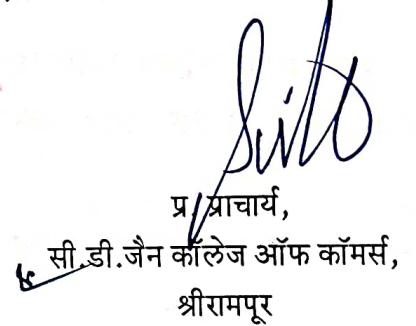 प्र. प्राचार्य,
सी.डी.जैन कॉलेज ऑफ कॉमर्स,
श्रीरामपूर